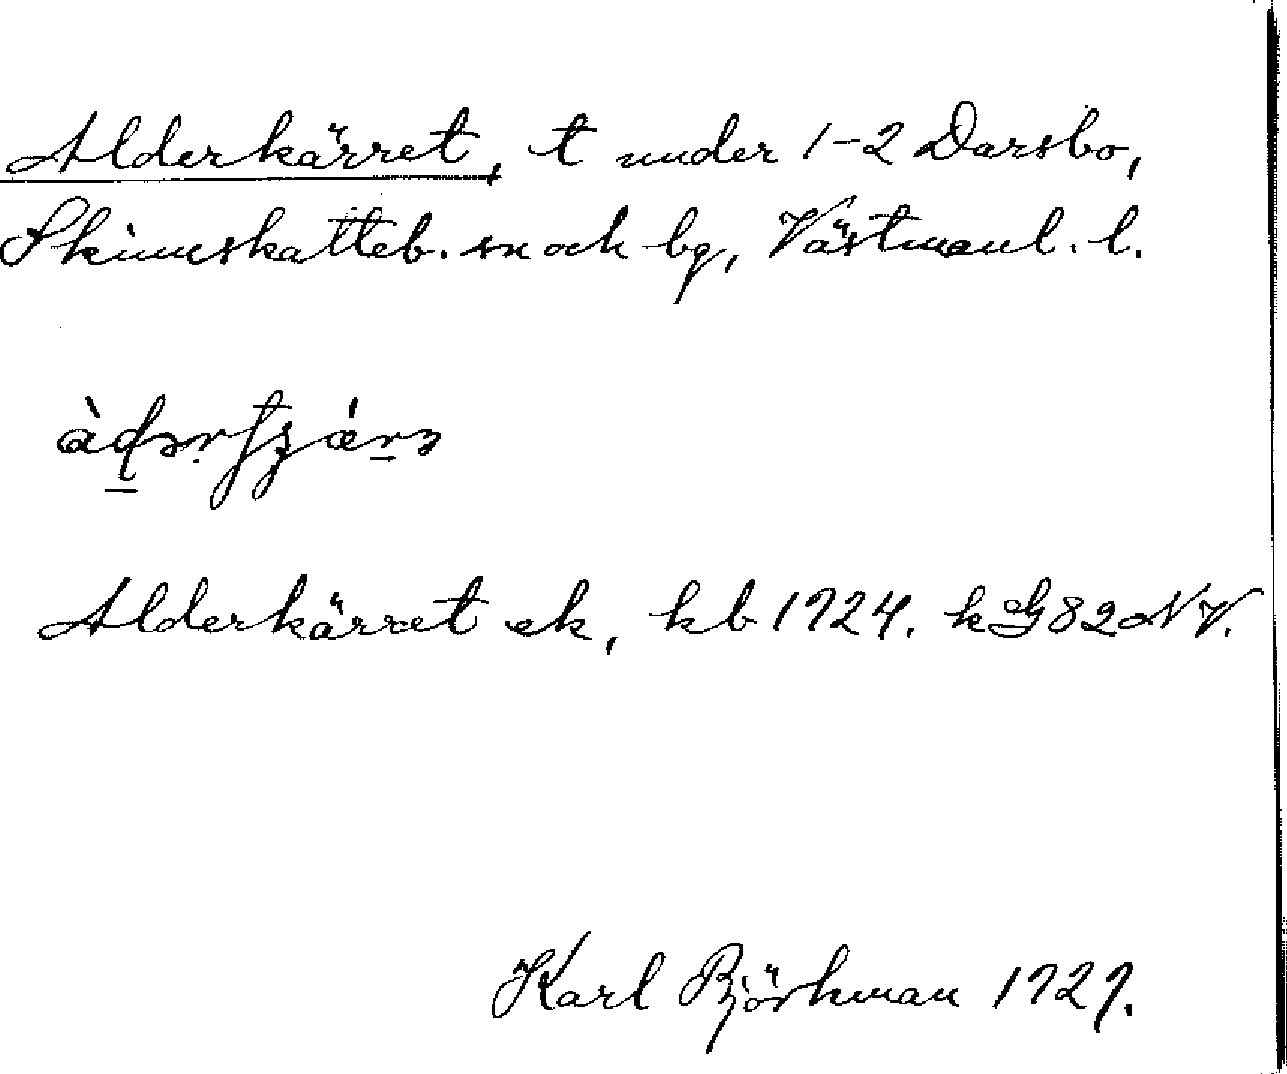 Alderkärret, t under 1-2 Darsbo,
Skinnskatteb. sn och bg, Västmanl. l.
Alderkärret ek, kb 1924. k G 82 NV.
Karl Björkman 1929.